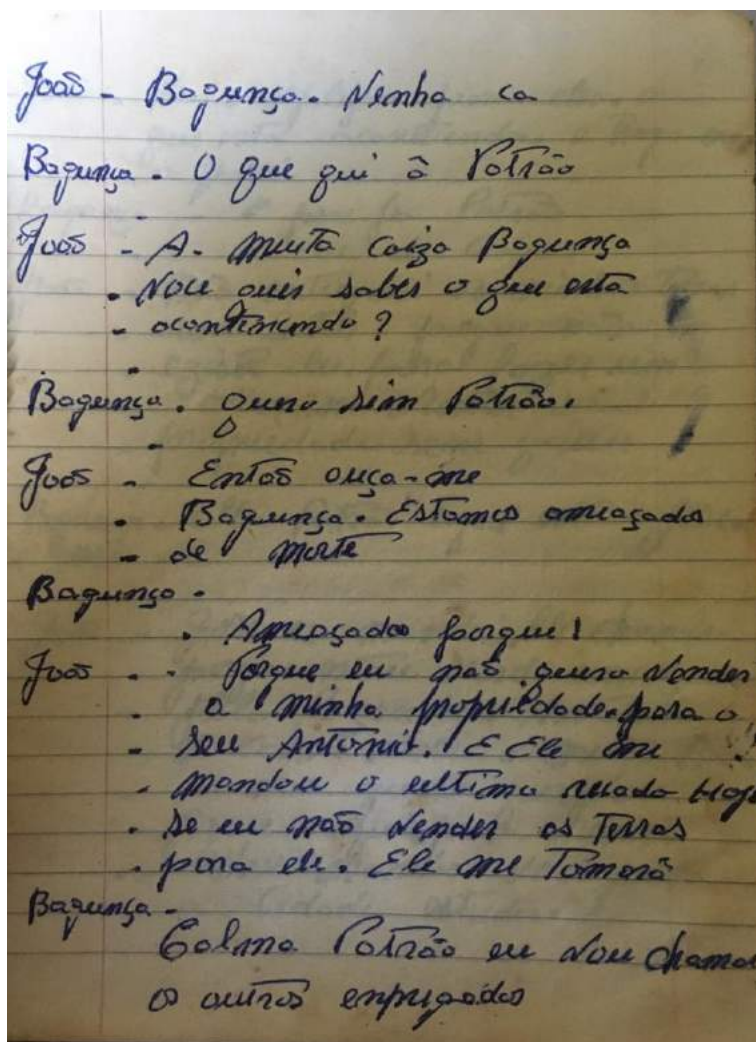 João - Bagunça. Venha ca
Bagunça - O que qui â Patrão
João - A. muita coiza Bagunça
- Voce quis saber o que esta
- acontincendo?
Bagunça. quero sim Patrão.
João - Então ouça-me
- Bagunça. Estamos ameaçados
- de morte
Bagunça -
. Ameaçados porque!
João - - Porque eu não quero vender
- a minha propriedade. para o
- seu Antonio. E Ele me
- mandou o ultimo recado hoje
- se eu não vender as Terras
- para ele. Ele me Tomarâ
Bagunça -
Calma Patrão eu vou chamar
os outros enpregados